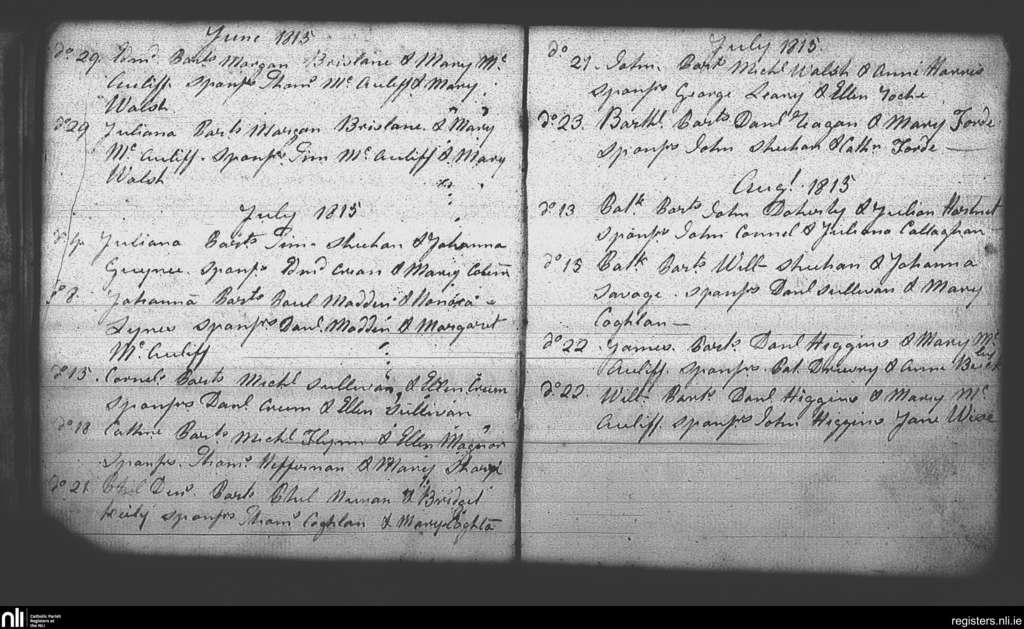 June 1815
do 29. Edmd. Parts Morgan Brislane & Mary Mc
Auliff. sponsrs Thoms. Mc Auliff & Mary
Walsh
do 29 Juliana Parts Morgan Brislane & Mary
Mc Auliff. sponsrs Tim Mc Auliff & Mary
Walsh
July 1815
Juliana Parts Tim Sheehan & Johanna
sponsrs Edmd Crean & Mary
do 8. Johanna Parts Paul Madden & Honora
Lynes sponsrs Danl. Madden & Margaret
Mc Auliff
do 15. Cornels. Parts Michl Sullivan, & Ellen Creem
sponsrs Danl. Creem & Ellen Sullivan
do 18 Cathne Parts Michl Flynn & Ellen Magnor
sponsrs. Thoms. Heffernan & Mary
do 21 Parts Nunan & Bridget
sponsrs Thoms Coghlan & Mary
July 1815.
do 21. John Parts Michl Walsh & Anne Harris
sponsrs George Leary & Ellen
do 23. Barthl. Parts Danl Eagan & Mary Forde
sponsrs John Sheehan & Cathn Forde
Augt. 1815
do 13 Patk Parts John Doherty & Julian Hartnet
sponsrs John Connel & Juliana Callaghan
do 15 Patk Parts Willm Sheehan & Johanna
Savage. sponsrs Danl Sullivan & Mary
Coghlan
do 22 James. Parts. Danl Higgins & Mary Mc
Auliff. sponsrs. Pat. & Anne
do 22. Willm Parts. Danl Higgins & Mary Mc
Auliff. sponsrs John Higgins Jane Wise
nli
Catholic Parish
Registers at
the NLI
registers.nli.ie